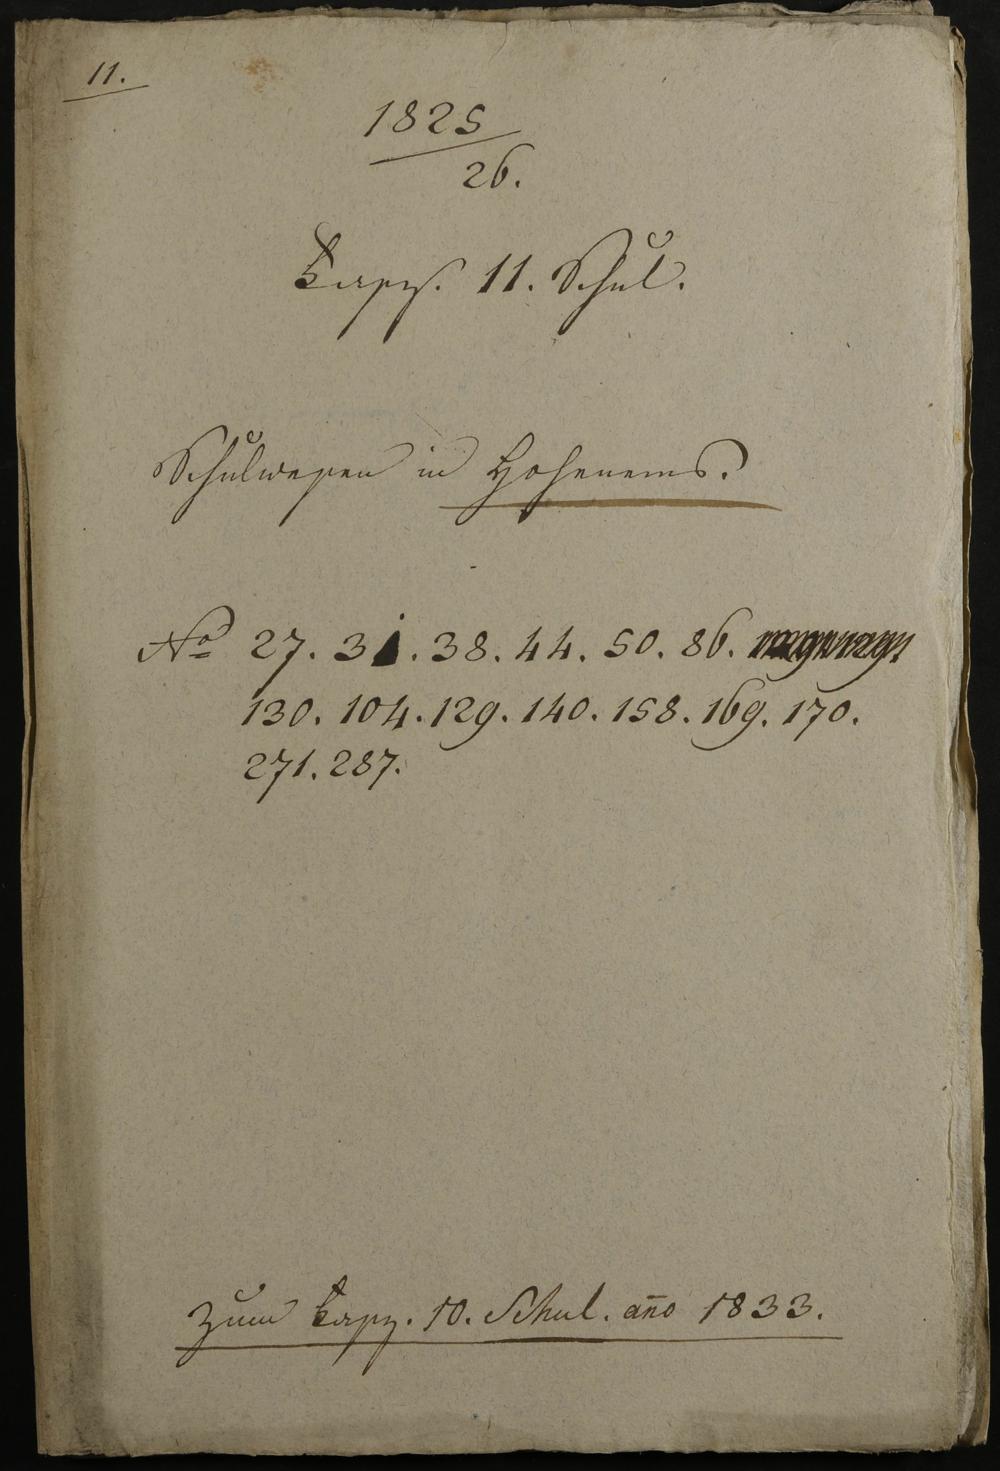 11.
1825
26.
Fasz. 11. Schul.
Schulwesen in Hohenems.
No 27. 31. 38. 44. 50. 86.
130. 104. 129. 140. 158. 169. 170.
271. 287.
Zum Fasz. 10. Schul. año 1833.